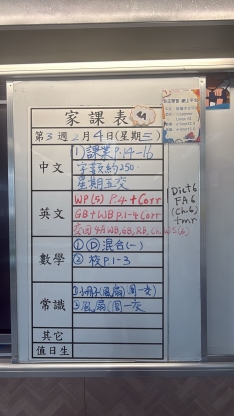 家課表
第3週 2月4日(星期三)
中文
① 課業 P.14-16
字數約250
星期五交
英文
WP (5) P.4 + Corr
GB + WB P.1-4 Corr
交回 4A WB, GB, RB, Ch. WS (6)
數學
① (D) 混合(一)
② 校 P.1-3
常識
① 小冊子(風扇)(周一交)
② 風扇 (周一交)
其它
值日生
Dict 6
FA 6
(Ch.6)
tmr